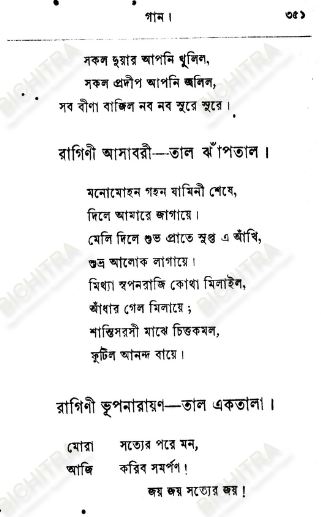 গান।
৩৫১
সকল দুয়ার আপনি খুলিল,
সকল প্রদীপ আপনি জ্বলিল,
সব বীণা বাজিল নব নব সুরে সুরে।
রাগিণী আসাবরী—তাল ঝাঁপতাল।
মনোমোহন গহন যামিনী শেষে,
দিলে আমারে জাগায়ে।
মেলি দিলে শুভ প্রাতে সুপ্ত এ আঁখি,
শুভ্র আলোক লাগায়ে।
মিথ্যা স্বপনরাজি কোথা মিলাইল,
আঁধার গেল মিলায়ে;
শান্তিসরসী মাঝে চিত্তকমল,
ফুটিল আনন্দ বায়ে।
রাগিণী ভূপনারায়ণ—তাল একতালা।
মোরা সত্যের পরে মন,
আজি করিব সমর্পণ!
জয় জয় সত্যের জয়!
BICHITRA
BICHITRA
BICHITRA
BICHITRA
BICHITRA
BICHITRA